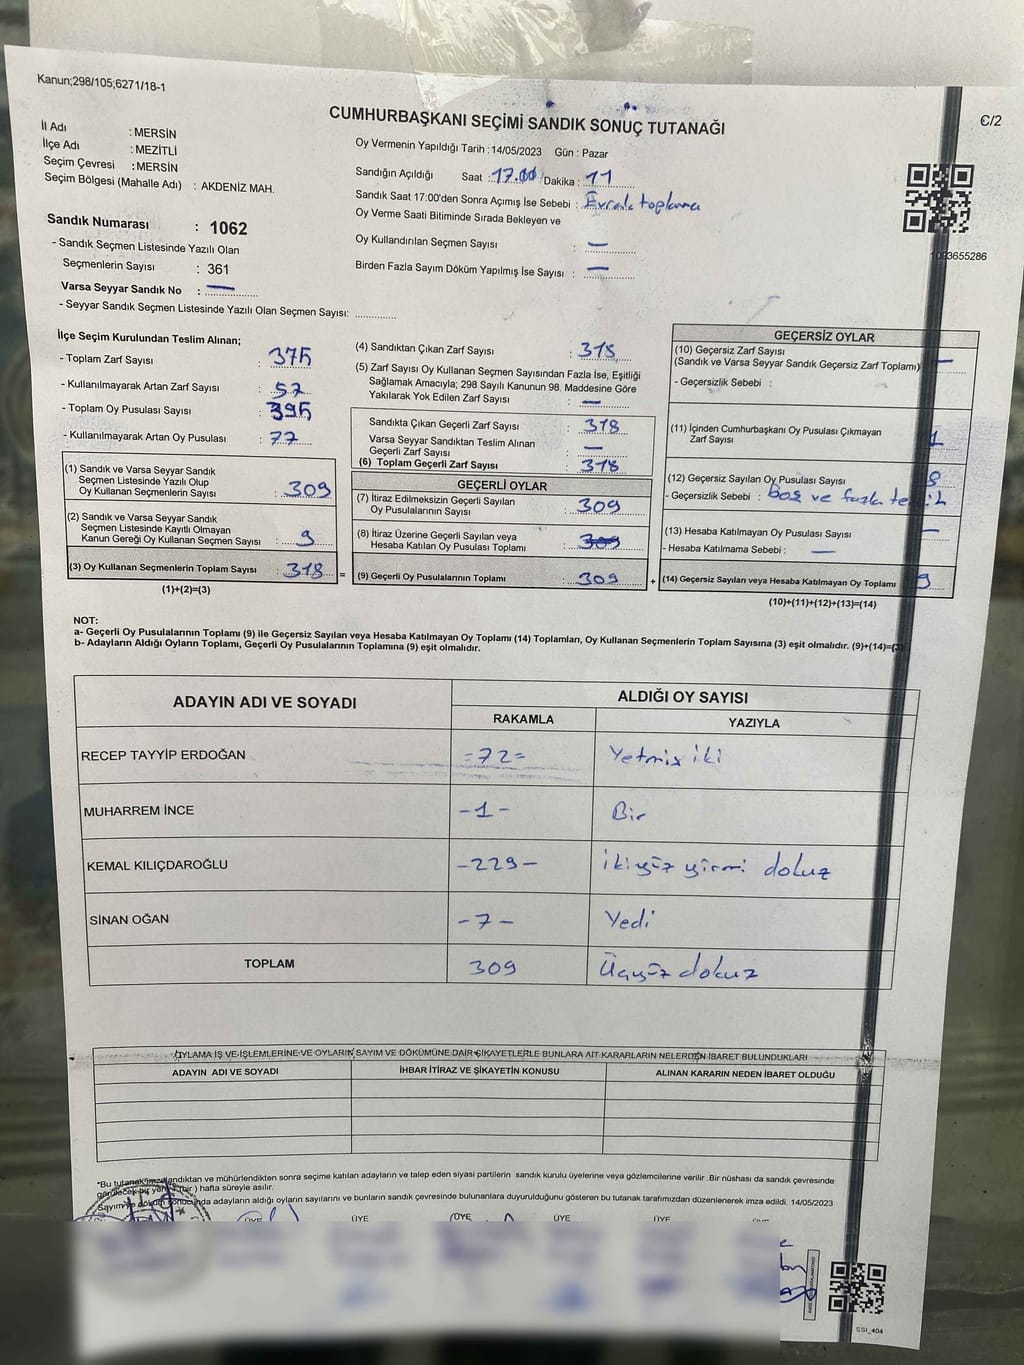 Kanun;298/105;6271/18-1
CUMHURBAŞKANI SEÇİMİ SANDIK SONUÇ TUTANAĞI
C/2
İl Adı : MERSİN
İlçe Adı : MEZİTLİ
Seçim Çevresi : MERSİN
Seçim Bölgesi (Mahalle Adı) : AKDENİZ MAH.
Sandık Numarası : 1062
- Sandık Seçmen Listesinde Yazılı Olan
Seçmenlerin Sayısı : 361
Varsa Seyyar Sandık No : —
- Seyyar Sandık Seçmen Listesinde Yazılı Olan Seçmen Sayısı: ............
Oy Vermenin Yapıldığı Tarih : 14/05/2023 Gün : Pazar
Sandığın Açıldığı Saat : 17.00 Dakika : 11
Sandık Saat 17:00'den Sonra Açımış İse Sebebi : Evrak toplama
Oy Verme Saati Bitiminde Sırada Bekleyen ve
Oy Kullandırılan Seçmen Sayısı : —
Birden Fazla Sayım Döküm Yapılmış İse Sayısı : —
1093655286
İlçe Seçim Kurulundan Teslim Alınan;
- Toplam Zarf Sayısı : 375
- Kullanılmayarak Artan Zarf Sayısı : 57
- Toplam Oy Pusulası Sayısı : 395
- Kullanılmayarak Artan Oy Pusulası : 77
(1) Sandık ve Varsa Seyyar Sandık
Seçmen Listesinde Yazılı Olup
Oy Kullanan Seçmenlerin Sayısı : 309
(2) Sandık ve Varsa Seyyar Sandık
Seçmen Listesinde Kayıtlı Olmayan
Kanun Gereği Oy Kullanan Seçmen Sayısı : 9
(3) Oy Kullanan Seçmenlerin Toplam Sayısı : 318 =
(1)+(2)=(3)
(4) Sandıktan Çıkan Zarf Sayısı : 318
(5) Zarf Sayısı Oy Kullanan Seçmen Sayısından Fazla İse, Eşitliği
Sağlamak Amacıyla; 298 Sayılı Kanunun 98. Maddesine Göre
Yakılarak Yok Edilen Zarf Sayısı : —
Sandıkta Çıkan Geçerli Zarf Sayısı : 318
Varsa Seyyar Sandıktan Teslim Alınan
Geçerli Zarf Sayısı : —
(6) Toplam Geçerli Zarf Sayısı : 318
GEÇERLİ OYLAR
(7) İtiraz Edilmeksizin Geçerli Sayılan
Oy Pusulalarının Sayısı : 309
(8) İtiraz Üzerine Geçerli Sayılan veya
Hesaba Katılan Oy Pusulası Toplamı : 309
(9) Geçerli Oy Pusulalarının Toplamı : 309 +
GEÇERSİZ OYLAR
(10) Geçersiz Zarf Sayısı
(Sandık ve Varsa Seyyar Sandık Geçersiz Zarf Toplamı) —
- Geçersizlik Sebebi :
(11) İçinden Cumhurbaşkanı Oy Pusulası Çıkmayan
Zarf Sayısı 1
(12) Geçersiz Sayılan Oy Pusulası Sayısı 8
- Geçersizlik Sebebi : boş ve fazla
(13) Hesaba Katılmayan Oy Pusulası Sayısı —
- Hesaba Katılmama Sebebi : —
(14) Geçersiz Sayılan veya Hesaba Katılmayan Oy Toplamı 9
(10)+(11)+(12)+(13)=(14)
NOT:
a- Geçerli Oy Pusulalarının Toplamı (9) ile Geçersiz Sayılan veya Hesaba Katılmayan Oy Toplamı (14) Toplamları, Oy Kullanan Seçmenlerin Toplam Sayısına (3) eşit olmalıdır. (9)+(14)=(3)
b- Adayların Aldığı Oyların Toplamı, Geçerli Oy Pusulalarının Toplamına (9) eşit olmalıdır.
ADAYIN ADI VE SOYADI ALDIĞI OY SAYISI
RAKAMLA YAZIYLA
RECEP TAYYİP ERDOĞAN =72= Yetmiş iki
MUHARREM İNCE -1- Bir
KEMAL KILIÇDAROĞLU -229- İkiyüz yirmi dokuz
SİNAN OĞAN -7- Yedi
TOPLAM 309 Üçyüz dokuz
OYLAMA İŞ VE İŞLEMLERİNE VE OYLARIN SAYIM VE DÖKÜMÜNE DAİR ŞİKAYETLERLE BUNLARA AİT KARARLARIN NELERDEN İBARET BULUNDUKLARI
ADAYIN ADI VE SOYADI İHBAR İTİRAZ VE ŞİKAYETİN KONUSU ALINAN KARARIN NEDEN İBARET OLDUĞU
*Bu tutanak imzalandıktan ve mühürlendikten sonra seçime katılan adayların ve talep eden siyasi partilerin sandık kurulu üyelerine veya gözlemcilerine verilir. Bir nüshası da sandık çevresinde
görülecek bir yere (bir) hafta süreyle asılır.
Sayım ve döküm sonucunda adayların aldığı oyların sayılarını ve bunların sandık çevresinde bulunanlara duyurulduğunu gösteren bu tutanak tarafımızdan düzenlenerek imza edildi. 14/05/2023
ÜYE ÜYE ÜYE ÜYE ÜYE ÜYE
SSI_404